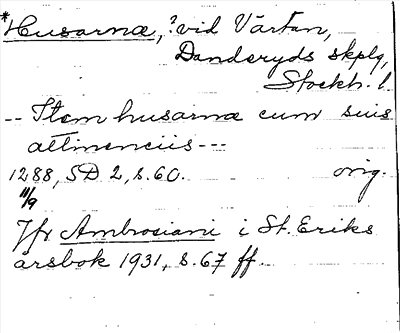 *Husarnæ, ? vid Värtan,
Danderyds skplg,
Stockh. l.
-- Item husarnæ cum suis
attinenciis ---
1288, SD 2, s. 60. orig.
11/9
Jfr Ambrosiani i St. Eriks
årsbok 1931, s. 67 ff.